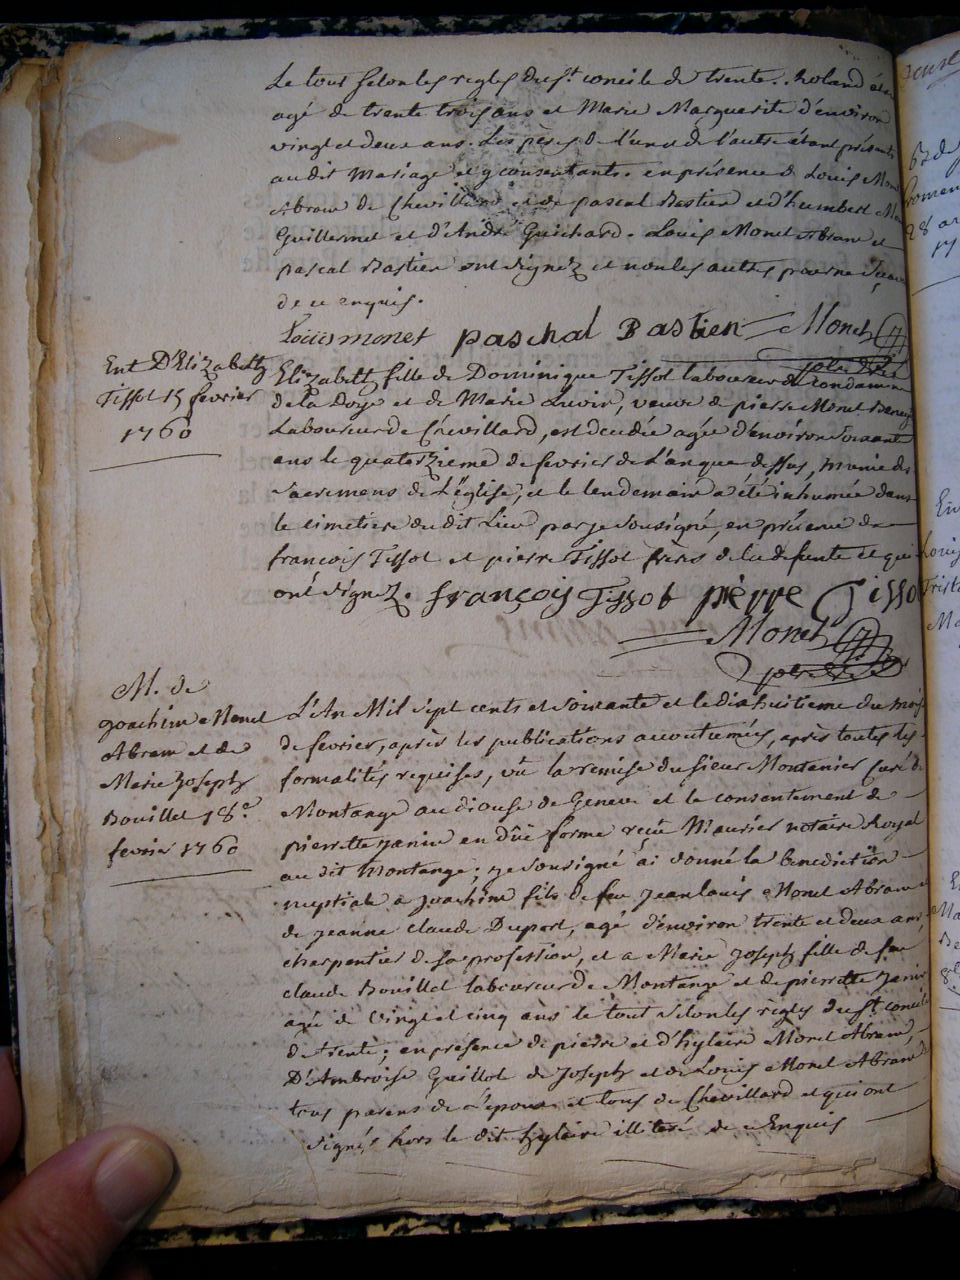 Le tout selon les regles du st. concile de trente. Roland étant
agé de trente trois ans et Marie Marguerite d'environ
vingt et deux ans. Les peres de l'un et de l'autre étant présents
au dit Mariage et y consentants. en présence de Louis Monet
Abram de Chevillard et de pascal Bastien et d'humbert
Guillermet et d'André Guichard. Louis Monet Abram et
pascal Bastien ont signez et non les autres pour ne sçavoir
de ce enquis.
Louis monet paschal Bastien Monet
Ent D'Elizabeth
Tissot 15 fevrier
1760
Elizabeth fille de Dominique Tissot laboureur de Condamine
de la Doye et de Marie Livoir, veuve de pierre Monet
Laboureur de Chevillard, est decedée agée d'environ soixante
ans le quatorzieme de fevrier de l'an que dessus, munie des
sacremens de L'église, et le lendemain a été inhumée dans
le cimetiere du dit Lieu par je sousigné, en présence de
françois Tissot et pierre Tissot freres de la defunte et qui
ont signez. françois Tissot pierre Tissot
Monet
M. de
Joachim Monet
Abram et de
Marie Joseph
Bouillet 18e
fevrier 1760
L'An Mil sept cents et soixante et le dixhuitieme du mois
de fevrier, après les publications accoutumées, après toutes les
formalités requises, vû la remise du sieur Montanier Curé de
Montange au diocese de Geneve et le consentement de
pierrette janin en dûe forme reçû Maurier notaire Royal
au dit Montange; je sousigné ai donné la benediction
nuptiale a joachim fils de feu jean louis Monet Abram et
de jeanne claude Duport, agé d'environ trente et deux ans
charpentier de sa profession, et a Marie joseph fille de feu
claude Bouillet laboureur de Montange et de pierrette janin
agée de vingt et cinq ans le tout selon les règles du st concile
de trente; en présence de pierre et d'hylaire Monet Abram,
D'Ambroise Guillot de Joseph et de Louis Monet Abram
tous parens de l'epoux et tous de Chevillard et qui ont
signés hors le dit hylaire illiteré de ce Enquis